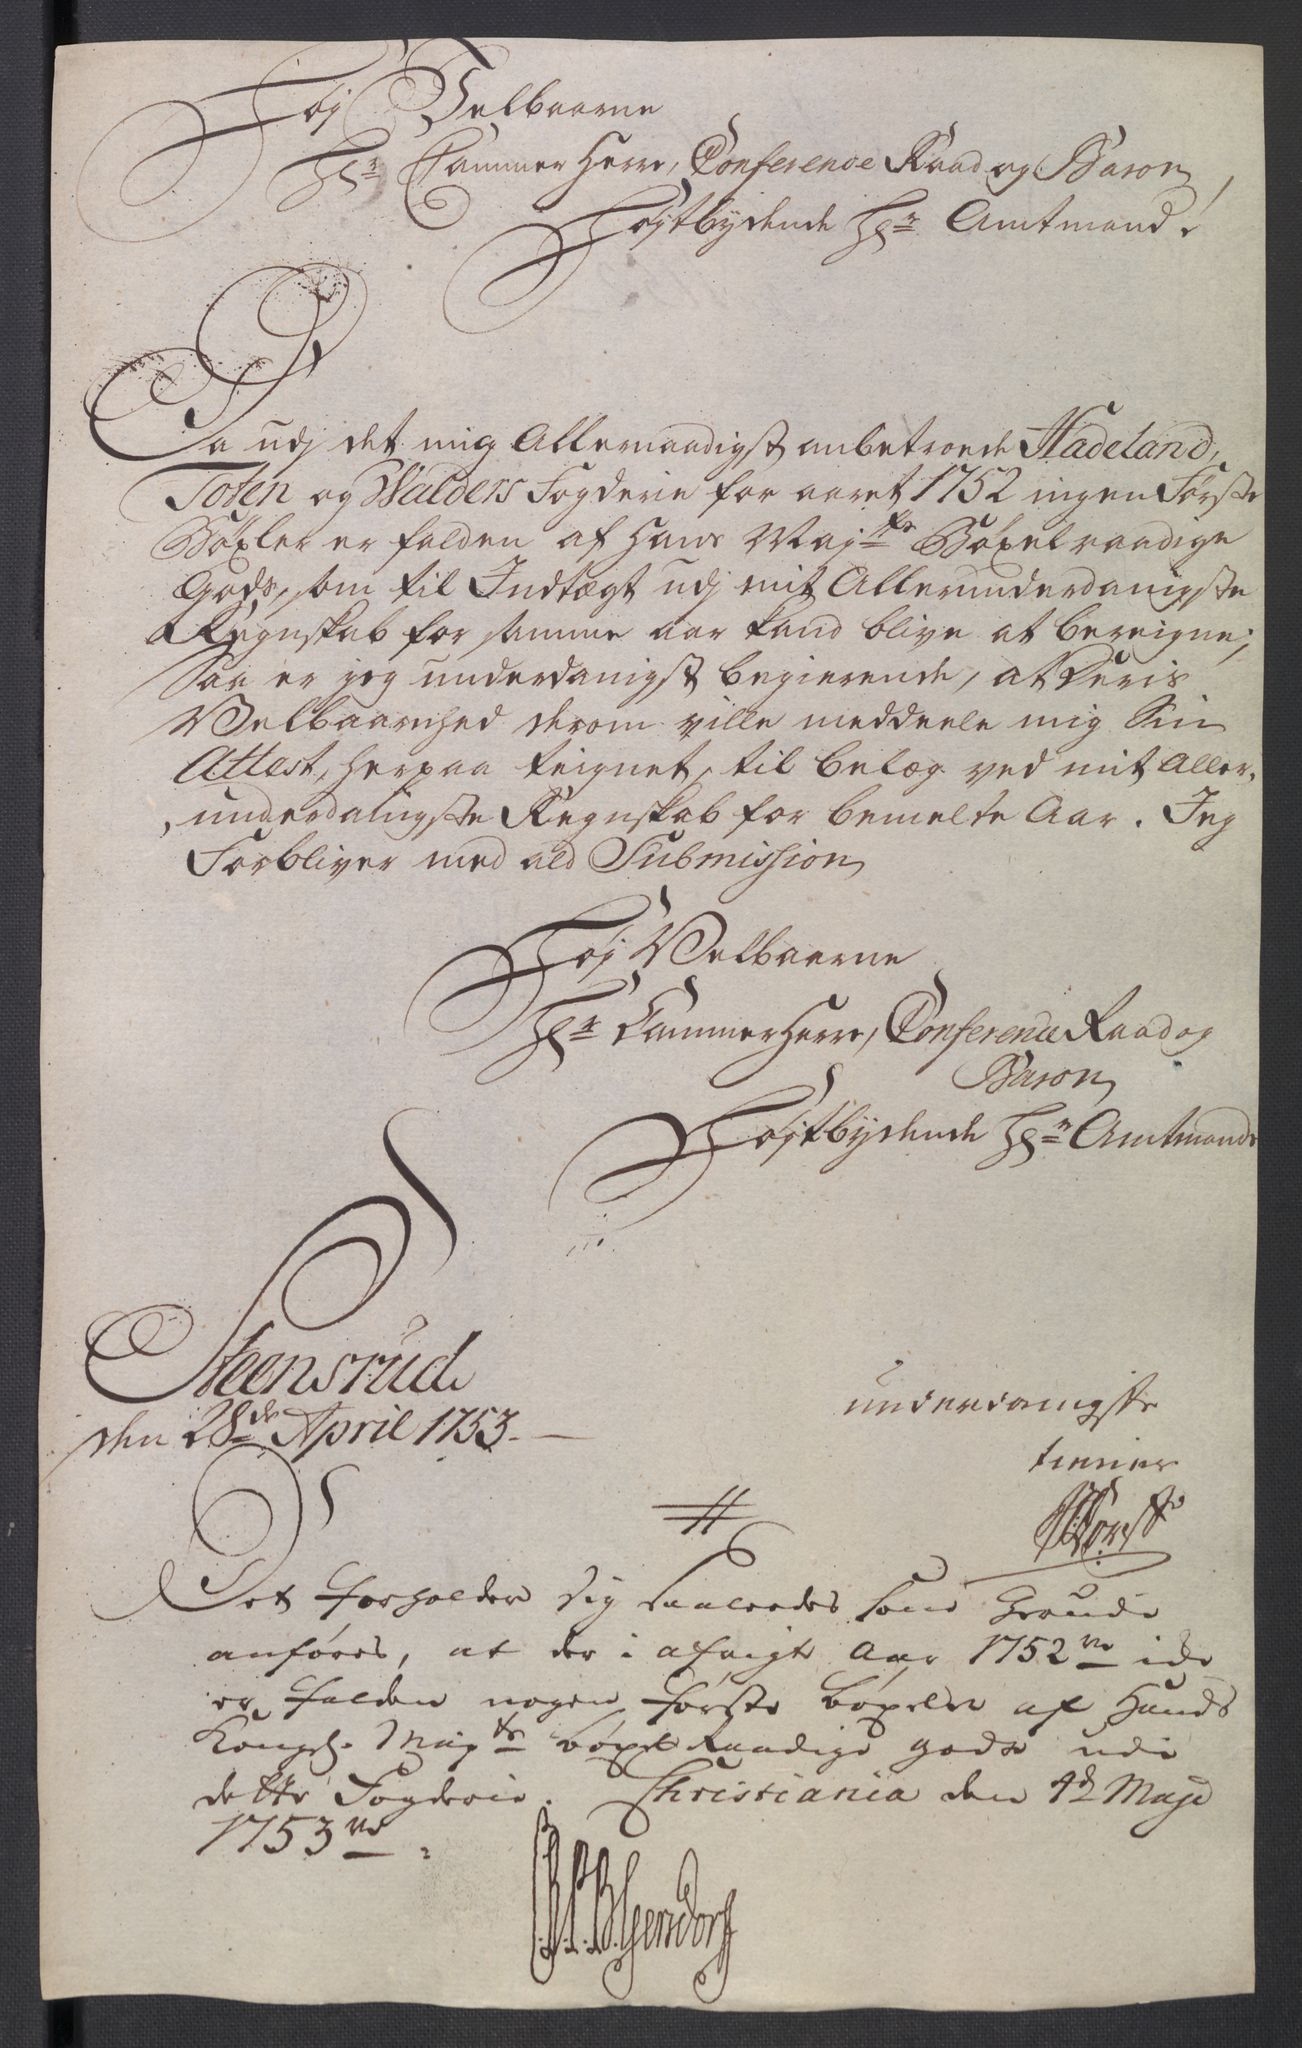 Høj Velbaarne
Hr Cammer Herre, Conference Raad og Baron,
Højtbydende Hr Amtmand!
Da udj det mig Allernaadigst anbetroede Hadeland,
Toten og Walders Fogderie for aaret 1752 ingen Første
Bøxler er falden af Hans Majts Bøxel raadige
Gods, som til Indtægt udj mit Allerunderdanigste
Regnskab for samme aar kand blive at bereigne;
Saa er jeg underdanigst begierende, at Deris
Velbaarnhed derom ville meddeele mig Sin
Attest, herpaa teignet, til belæg ved mit Aller-
underdanigste Regnskab for bemelte Aar. Jeg
Forbliver med ald Submission
Høj Velbaarne
Hr Cammer Herre, Conference Raad og
Baron
Højtbydende Hr Amtmands
Steensrud
den 28de April 1753.
underdanigste
tienner
Det forholder sig saaleedes som herudi
anføres, at der i afvigte Aar 1752ve ide
er falden nogen første bøxeler af Hands
Kongel. Mayts bøxel Raadige gods udi
dette Fogderie. Christiania den 4de Maji
1753ve.